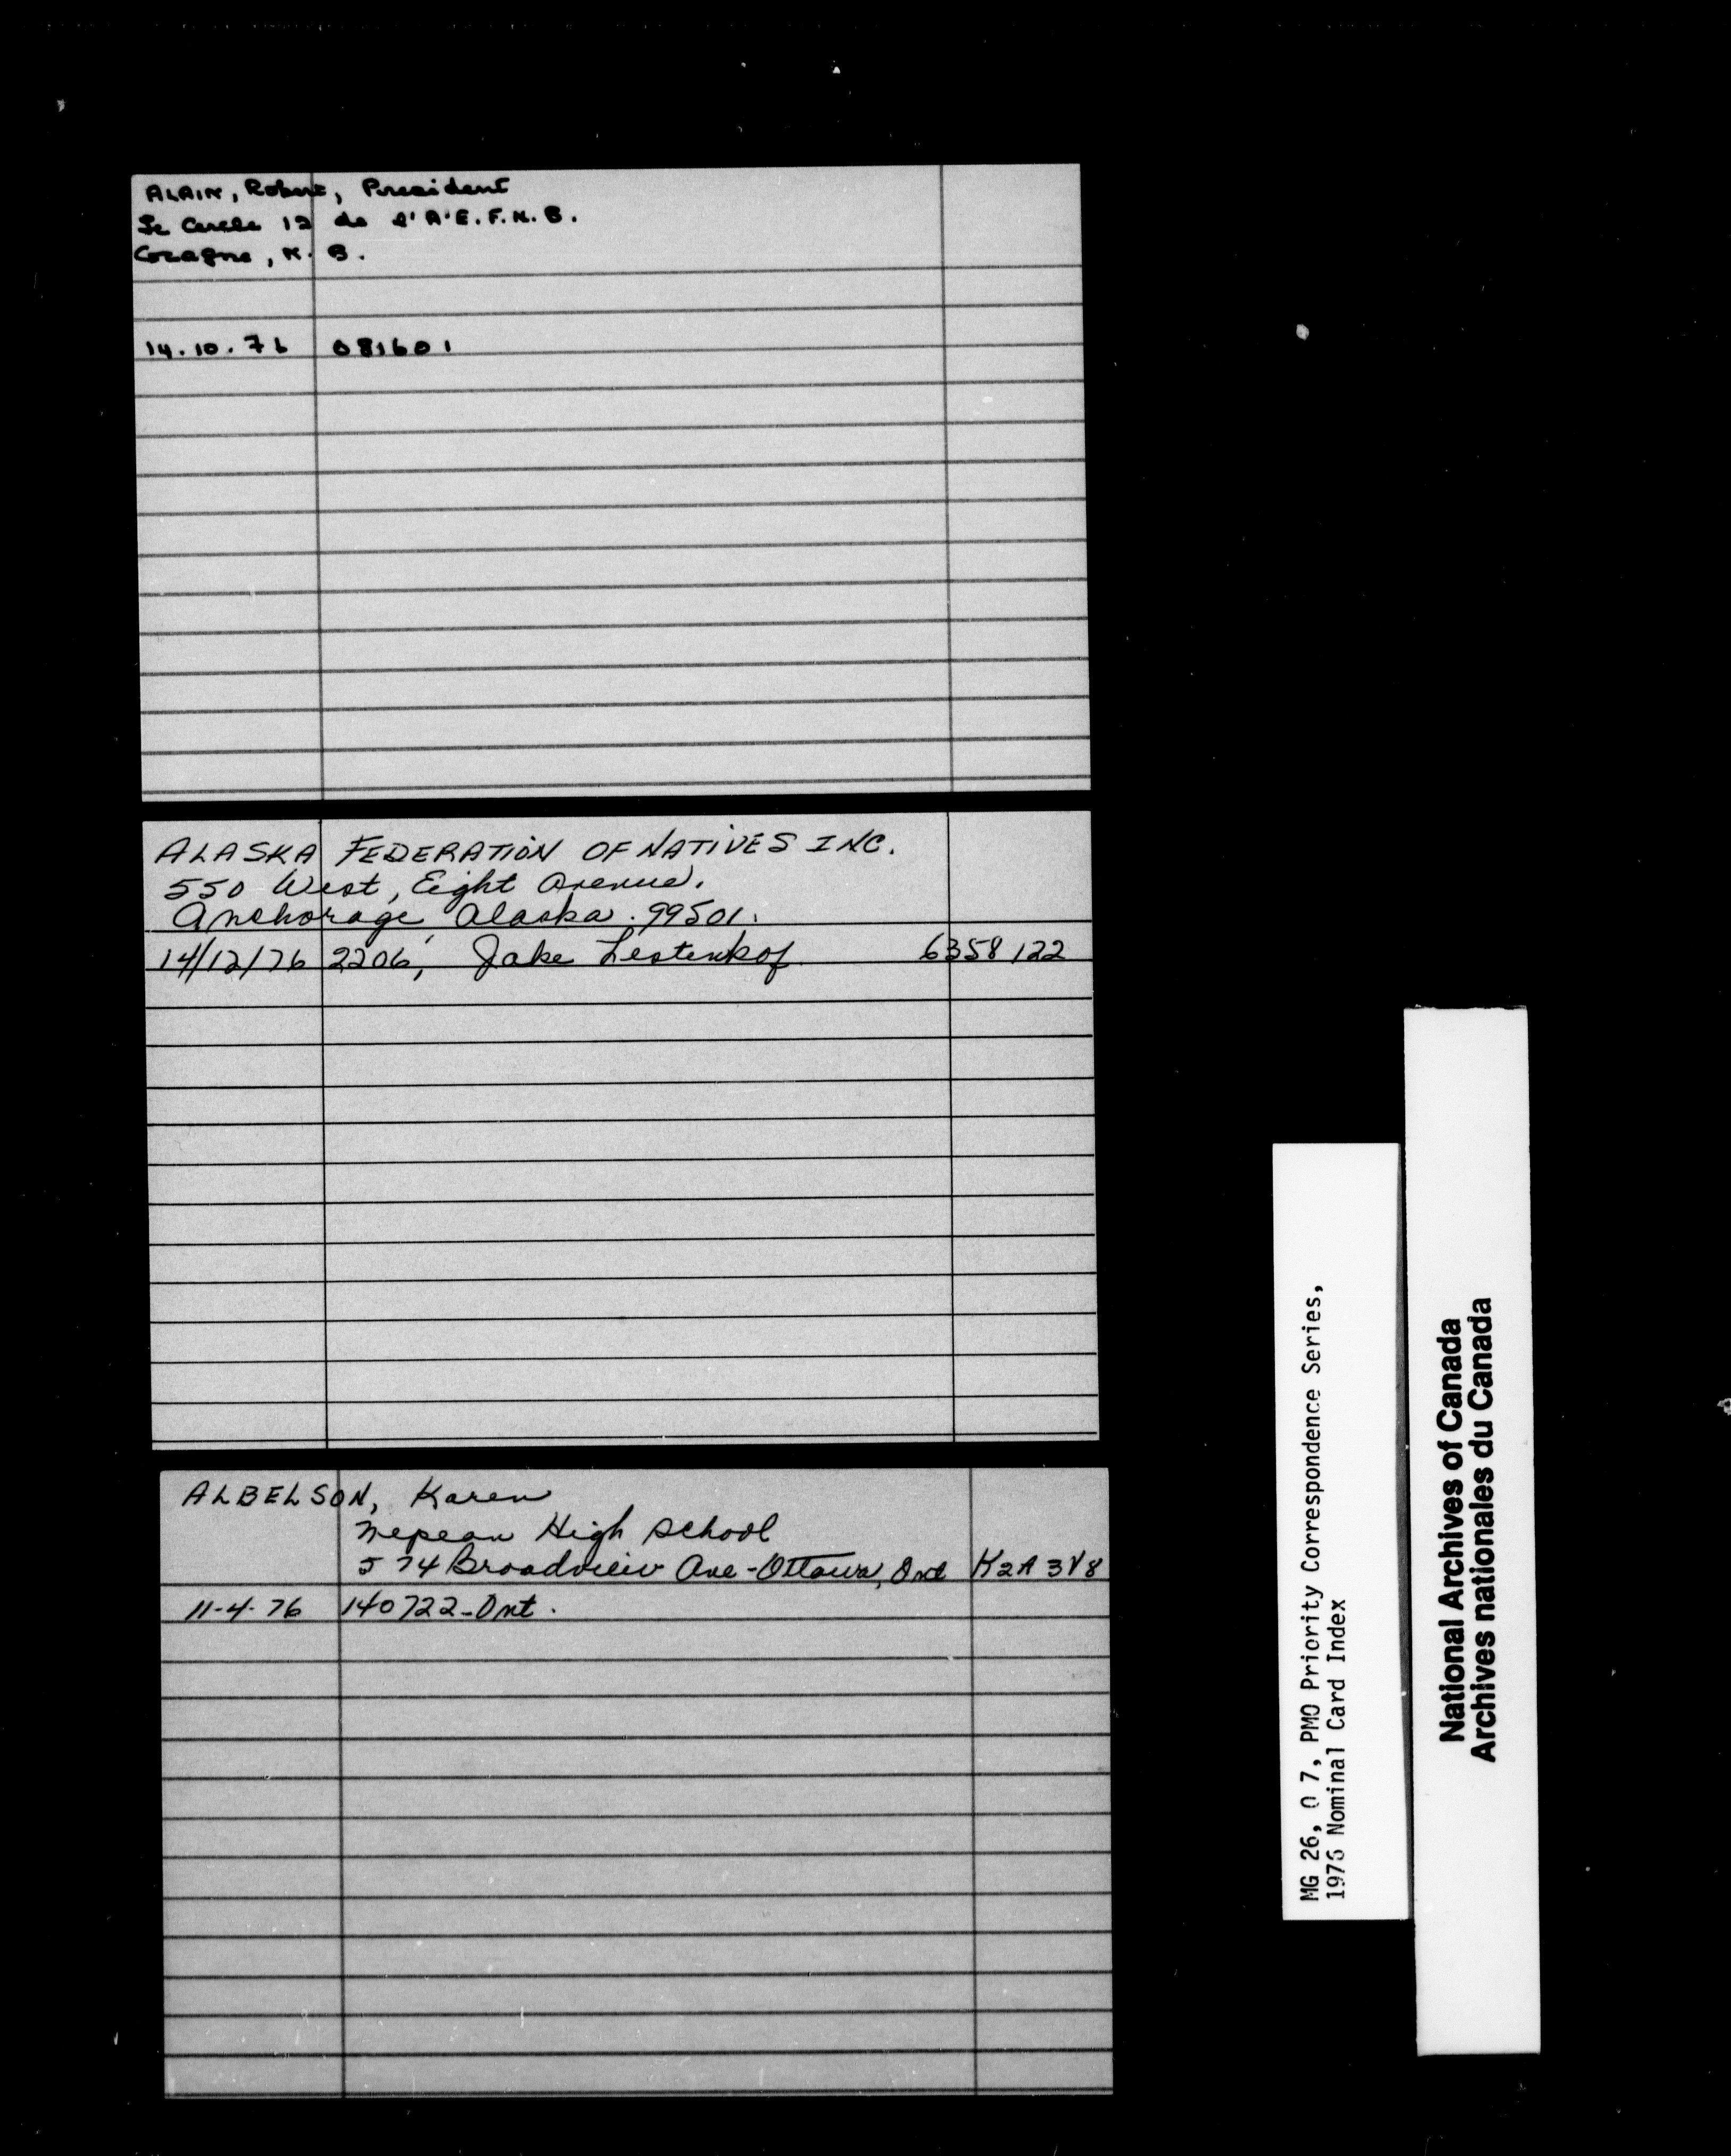 ALAIN, Robert, President
Le Cercle 12 de l'A'E.F.N.B.
Cocagne, N.B.
14.10.76 081601
ALASKA FEDERATION OF NATIVES INC.
550 West, Eight Avenue.
Anchorage, Alaska. 99501.
14/12/76 2206, Jake Lestenkof 6358122
ALBELSON, Karen
Nepean High School
574 Broadview Ave - Ottawa, Ont K2A 3V8
11-4-76 140722-Ont.
MG 26, O 7, PMO Priority Correspondence Series,
1976 Nominal Card Index
National Archives of Canada
Archives nationales du Canada